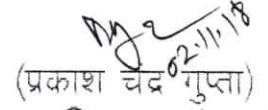 02.11.18
(प्रकाश चंद्र गुप्ता)